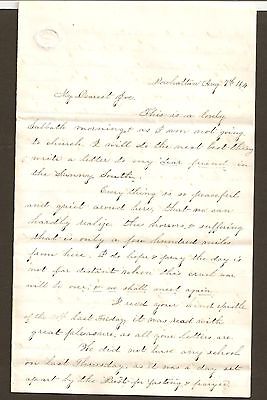 Powhattan Aug 7th 64
My Dearest Joe.
This is a lovely
Sabbath morning & as I am not going
to church I will do the next best thing
write a letter to my dear friend in
the Sunny South.
Every thing is so peaceful
and quiet around here, that we can
hardly realize the horrors & suffering
that is only a few hundred miles
from here. I do hope & pray the day is
not far distant when this cruel war
will be over, & we shall meet again.
I recd your kind epistle
of the last Friday it was read with
great pleasure, as all your letters are.
We did not have any school
on last Thursday, as it was a day set
apart by the Prest for fasting & prayer